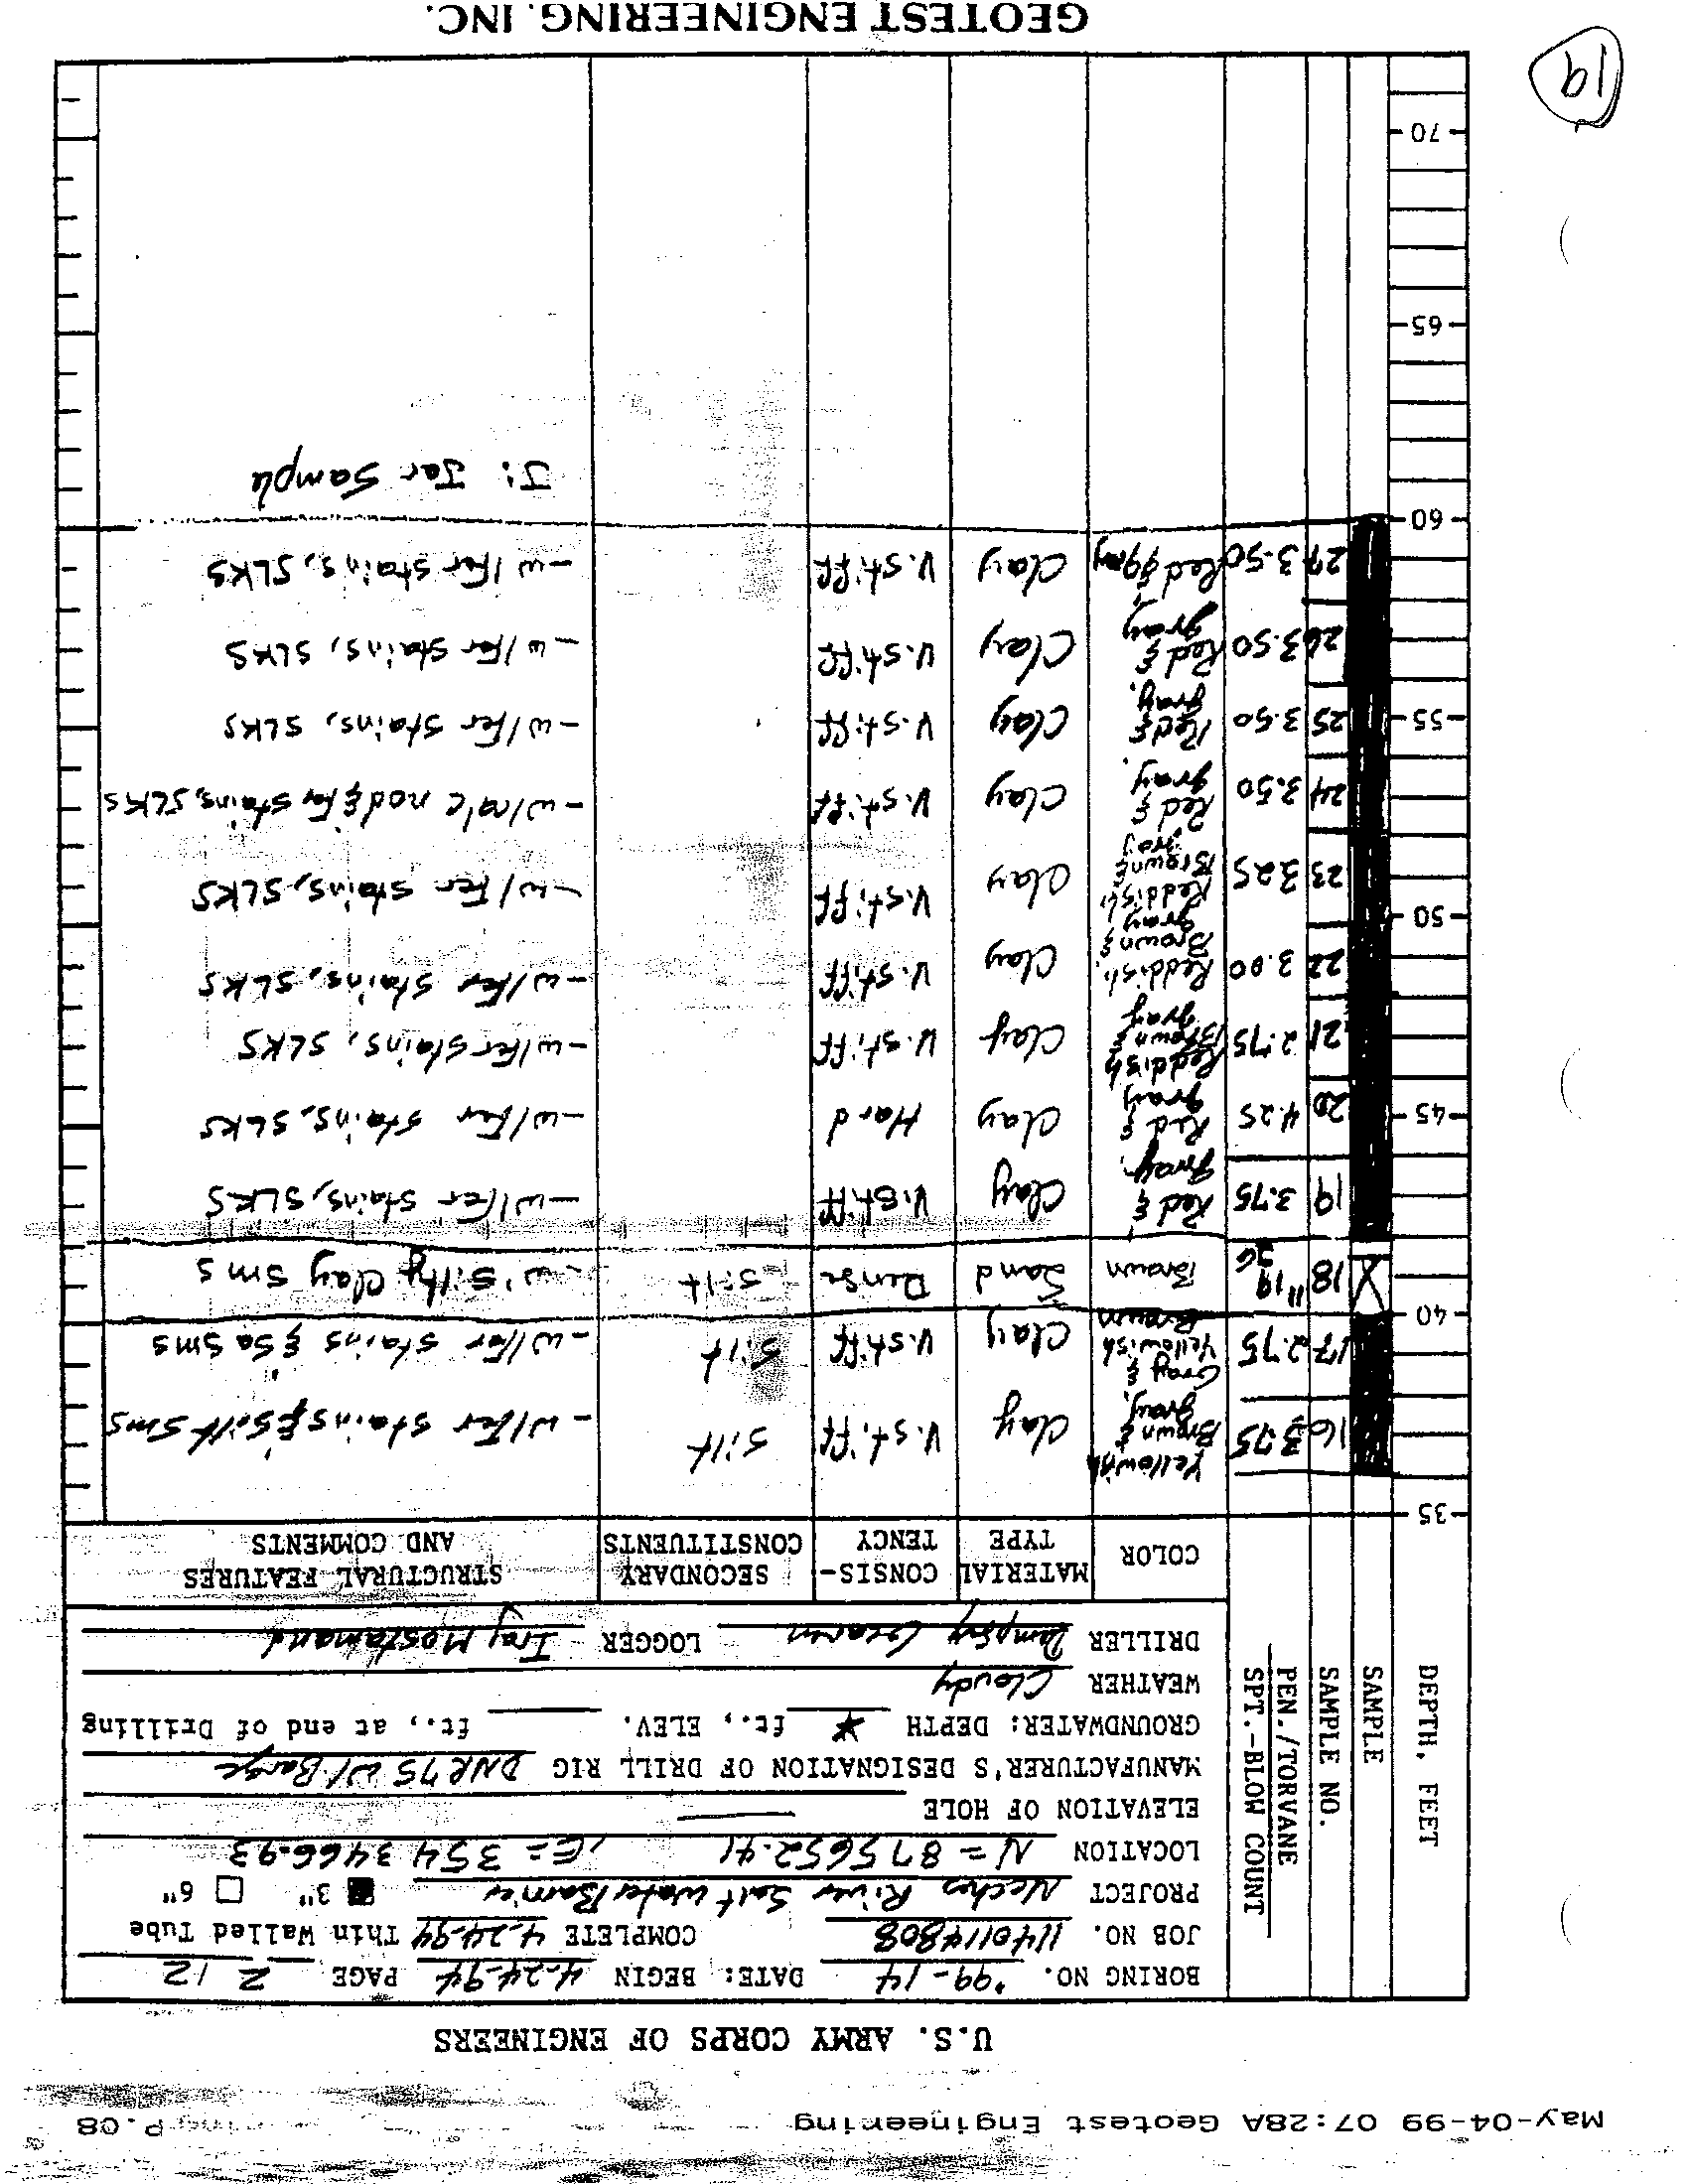 May-04-99 07:28A Geotest Engineering P.08
U.S. ARMY CORPS OF ENGINEERS
BORING NO. '99-14 DATE: BEGIN 4-24-99 PAGE 2 / 2
JOB NO. 1140114808 COMPLETE 4-24-99 Thin Walled Tube
PROJECT Neches River Salt Water Barrier 3" 6"
LOCATION N = 875652.41 , E = 3543466.93
ELEVATION OF HOLE
MANUFACTURER'S DESIGNATION OF DRILL RIG DNR 75 w/ Barge
GROUNDWATER: DEPTH * ft., ELEV. ft., at end of Drilling
WEATHER Cloudy
DRILLER LOGGER Iraj Mostamand
DEPTH, FEET
SAMPLE
SAMPLE NO.
PEN./TORVANE
SPT.-BLOW COUNT
COLOR MATERIAL TYPE CONSIS-TENCY SECONDARY CONSTITUENTS STRUCTURAL FEATURES AND COMMENTS
35
16 3.75 Yellowish Brown & gray Clay V.stiff Silt - w/fer stains & silt sms
17 2.75 Gray & Yellowish Brown Clay V.stiff Silt - w/fer stains & sa sms
40
18 11 19 26 Brown Sand Dense Silt - w/ Silty Clay sms
19 3.75 Red & gray Clay V.stiff - w/fer stains, SLKS
45
20 4.25 Red & gray Clay Hard - w/fer stains, SLKS
21 2.75 Reddish Brown & gray Clay V.stiff - w/fer stains, SLKS
22 3.00 Reddish Brown & gray Clay V.stiff - w/fer stains, SLKS
50
23 3.25 Reddish Brown & gray Clay V.stiff - w/fer stains, SLKS
24 3.50 Red & gray Clay V.stiff - w/calc nod & fer stains, SLKS
55
25 3.50 Red & gray Clay V.stiff - w/fer stains, SLKS
26 3.50 Red & gray Clay V.stiff - w/fer stains, SLKS
27 3.50 Red & gray Clay V.stiff - w/fer stains, SLKS
60
J: Jar Sample
65
70
GEOTEST ENGINEERING, INC.
19